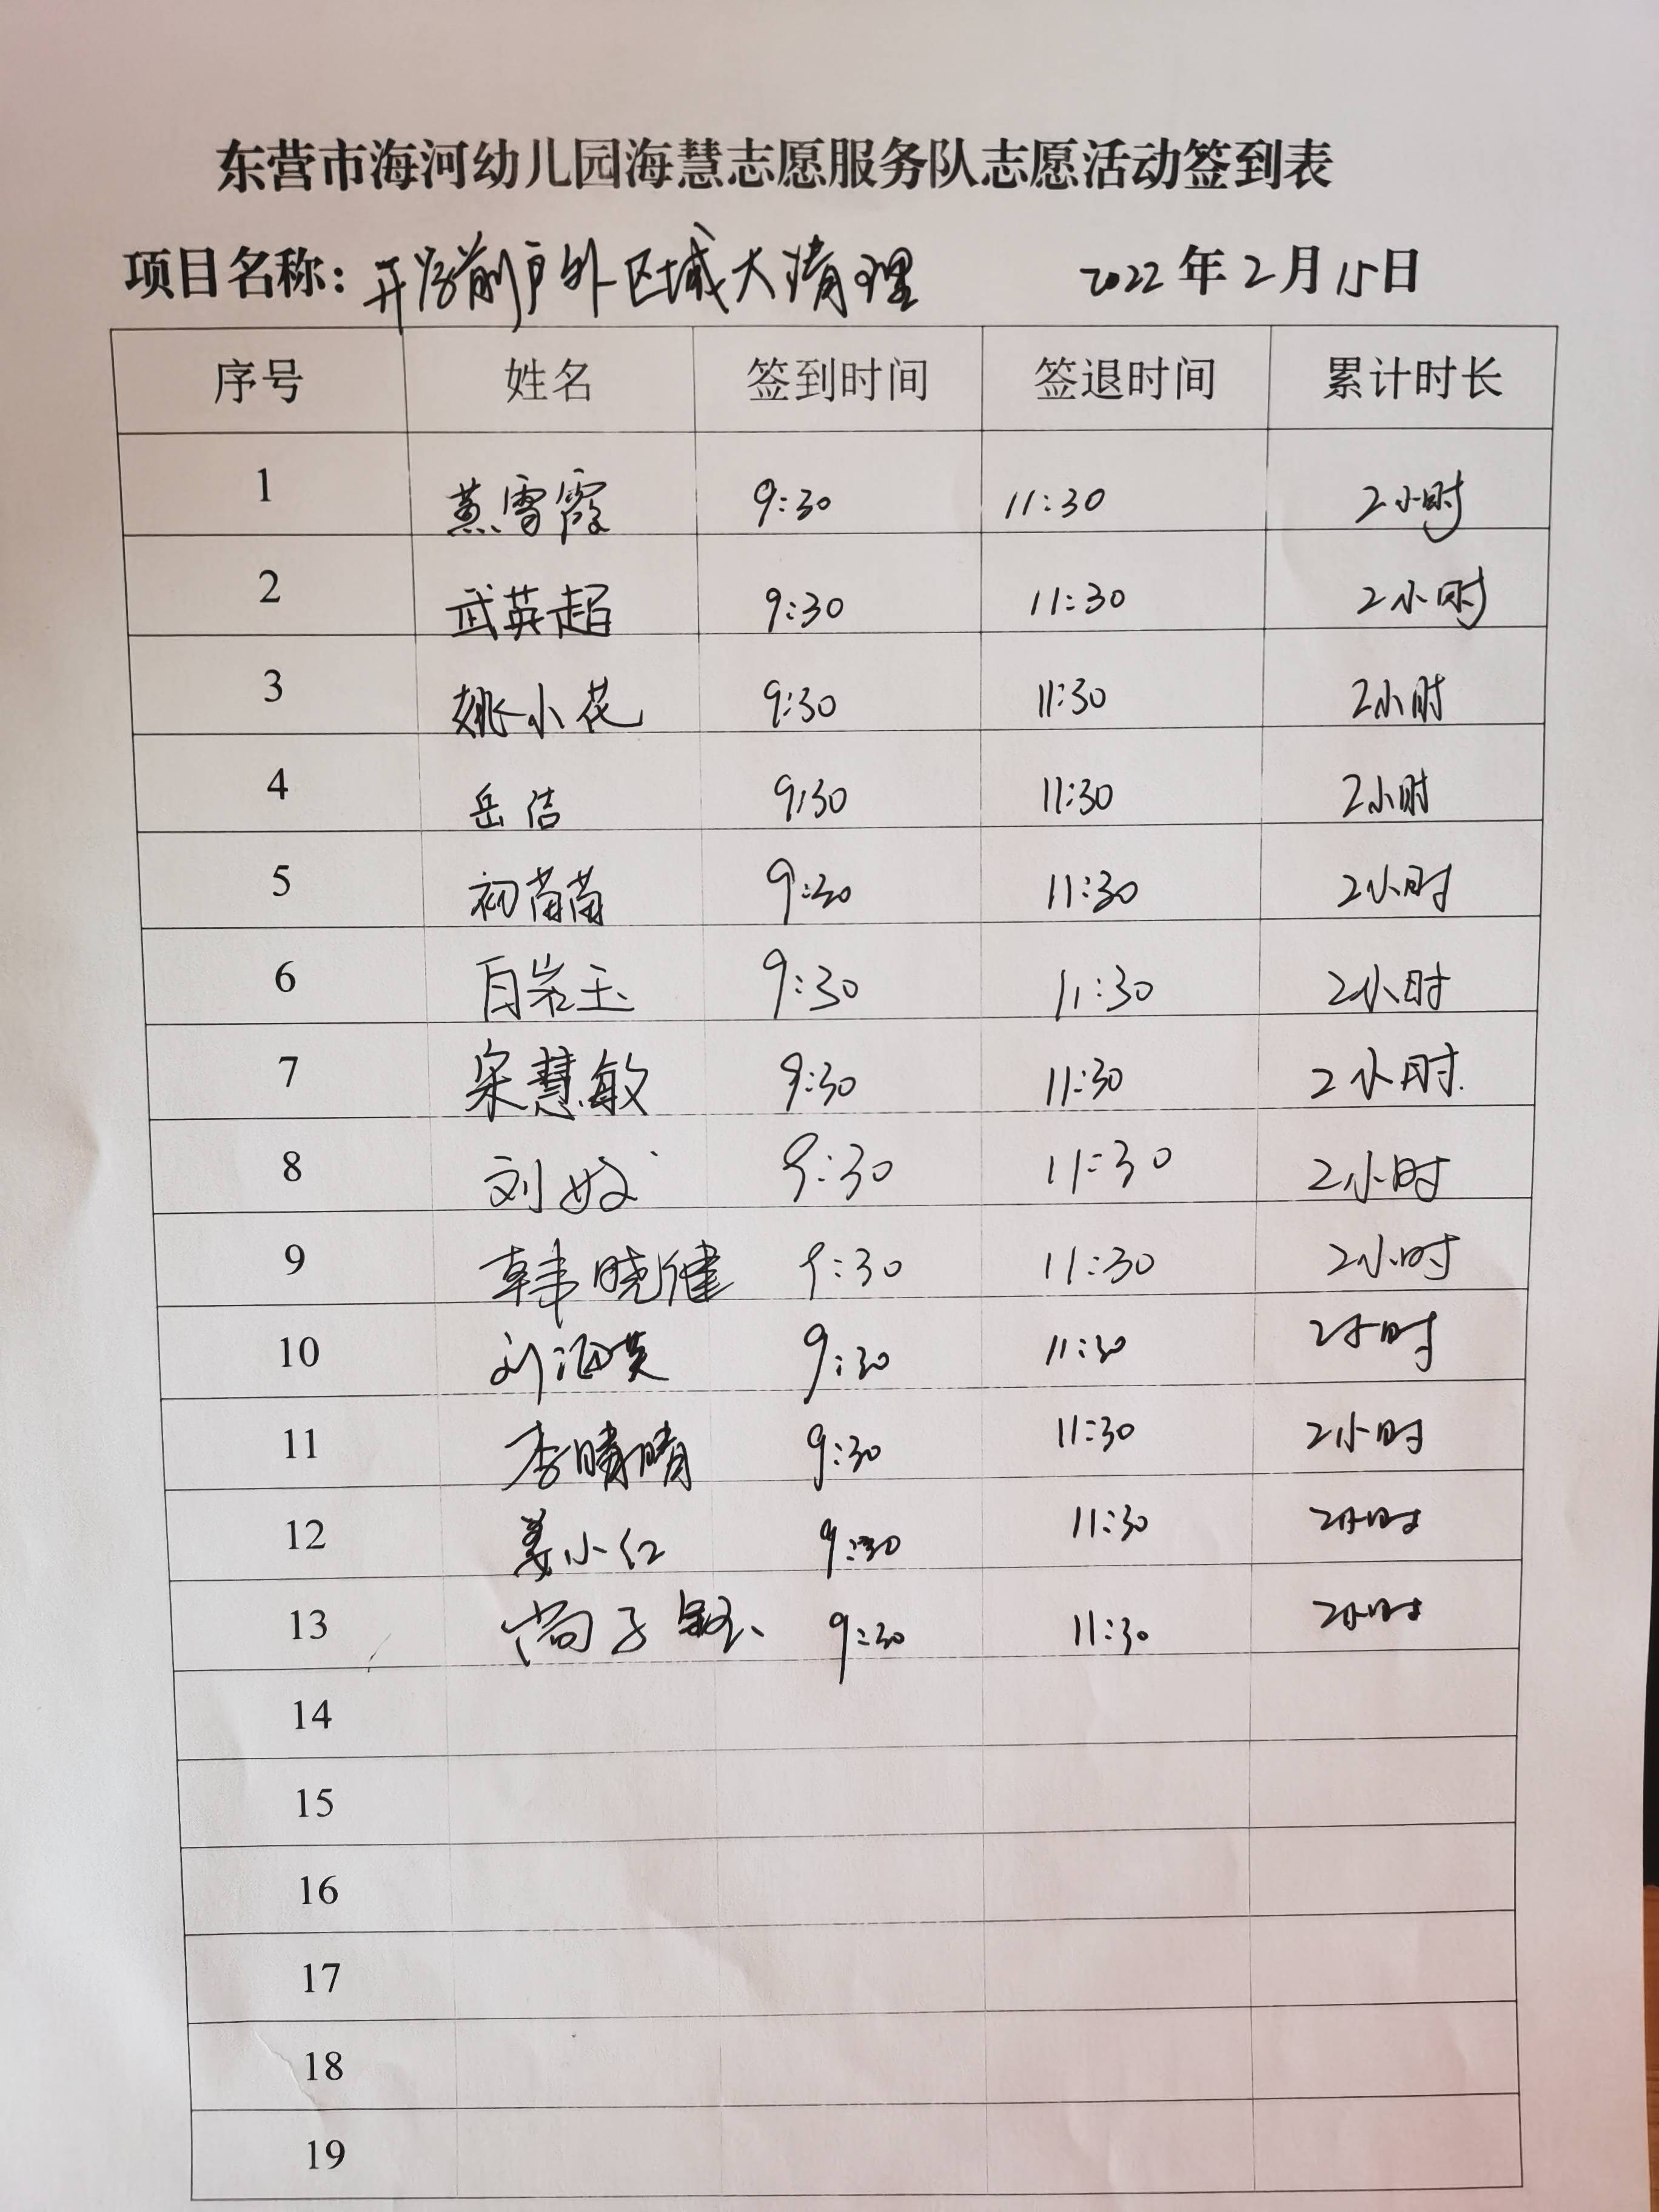 东营市海河幼儿园海慧志愿服务队志愿活动签到表
项目名称：开学前户外区域大清理 2022年2月15日
序号 姓名 签到时间 签退时间 累计时长
1 黄雪霞 9:30 11:30 2小时
2 武英超 9:30 11:30 2小时
3 姚小花 9:30 11:30 2小时
4 岳洁 9:30 11:30 2小时
5 初苗苗 9:30 11:30 2小时
6 白岩玉 9:30 11:30 2小时
7 宋慧敏 9:30 11:30 2小时
8 刘 9:30 11:30 2小时
9 韩晓健 9:30 11:30 2小时
10 刘 9:30 11:30 2小时
11 李晴晴 9:30 11:30 2小时
12 姜小红 9:30 11:30 2小时
13 尚子 9:30 11:30 2小时
14
15
16
17
18
19